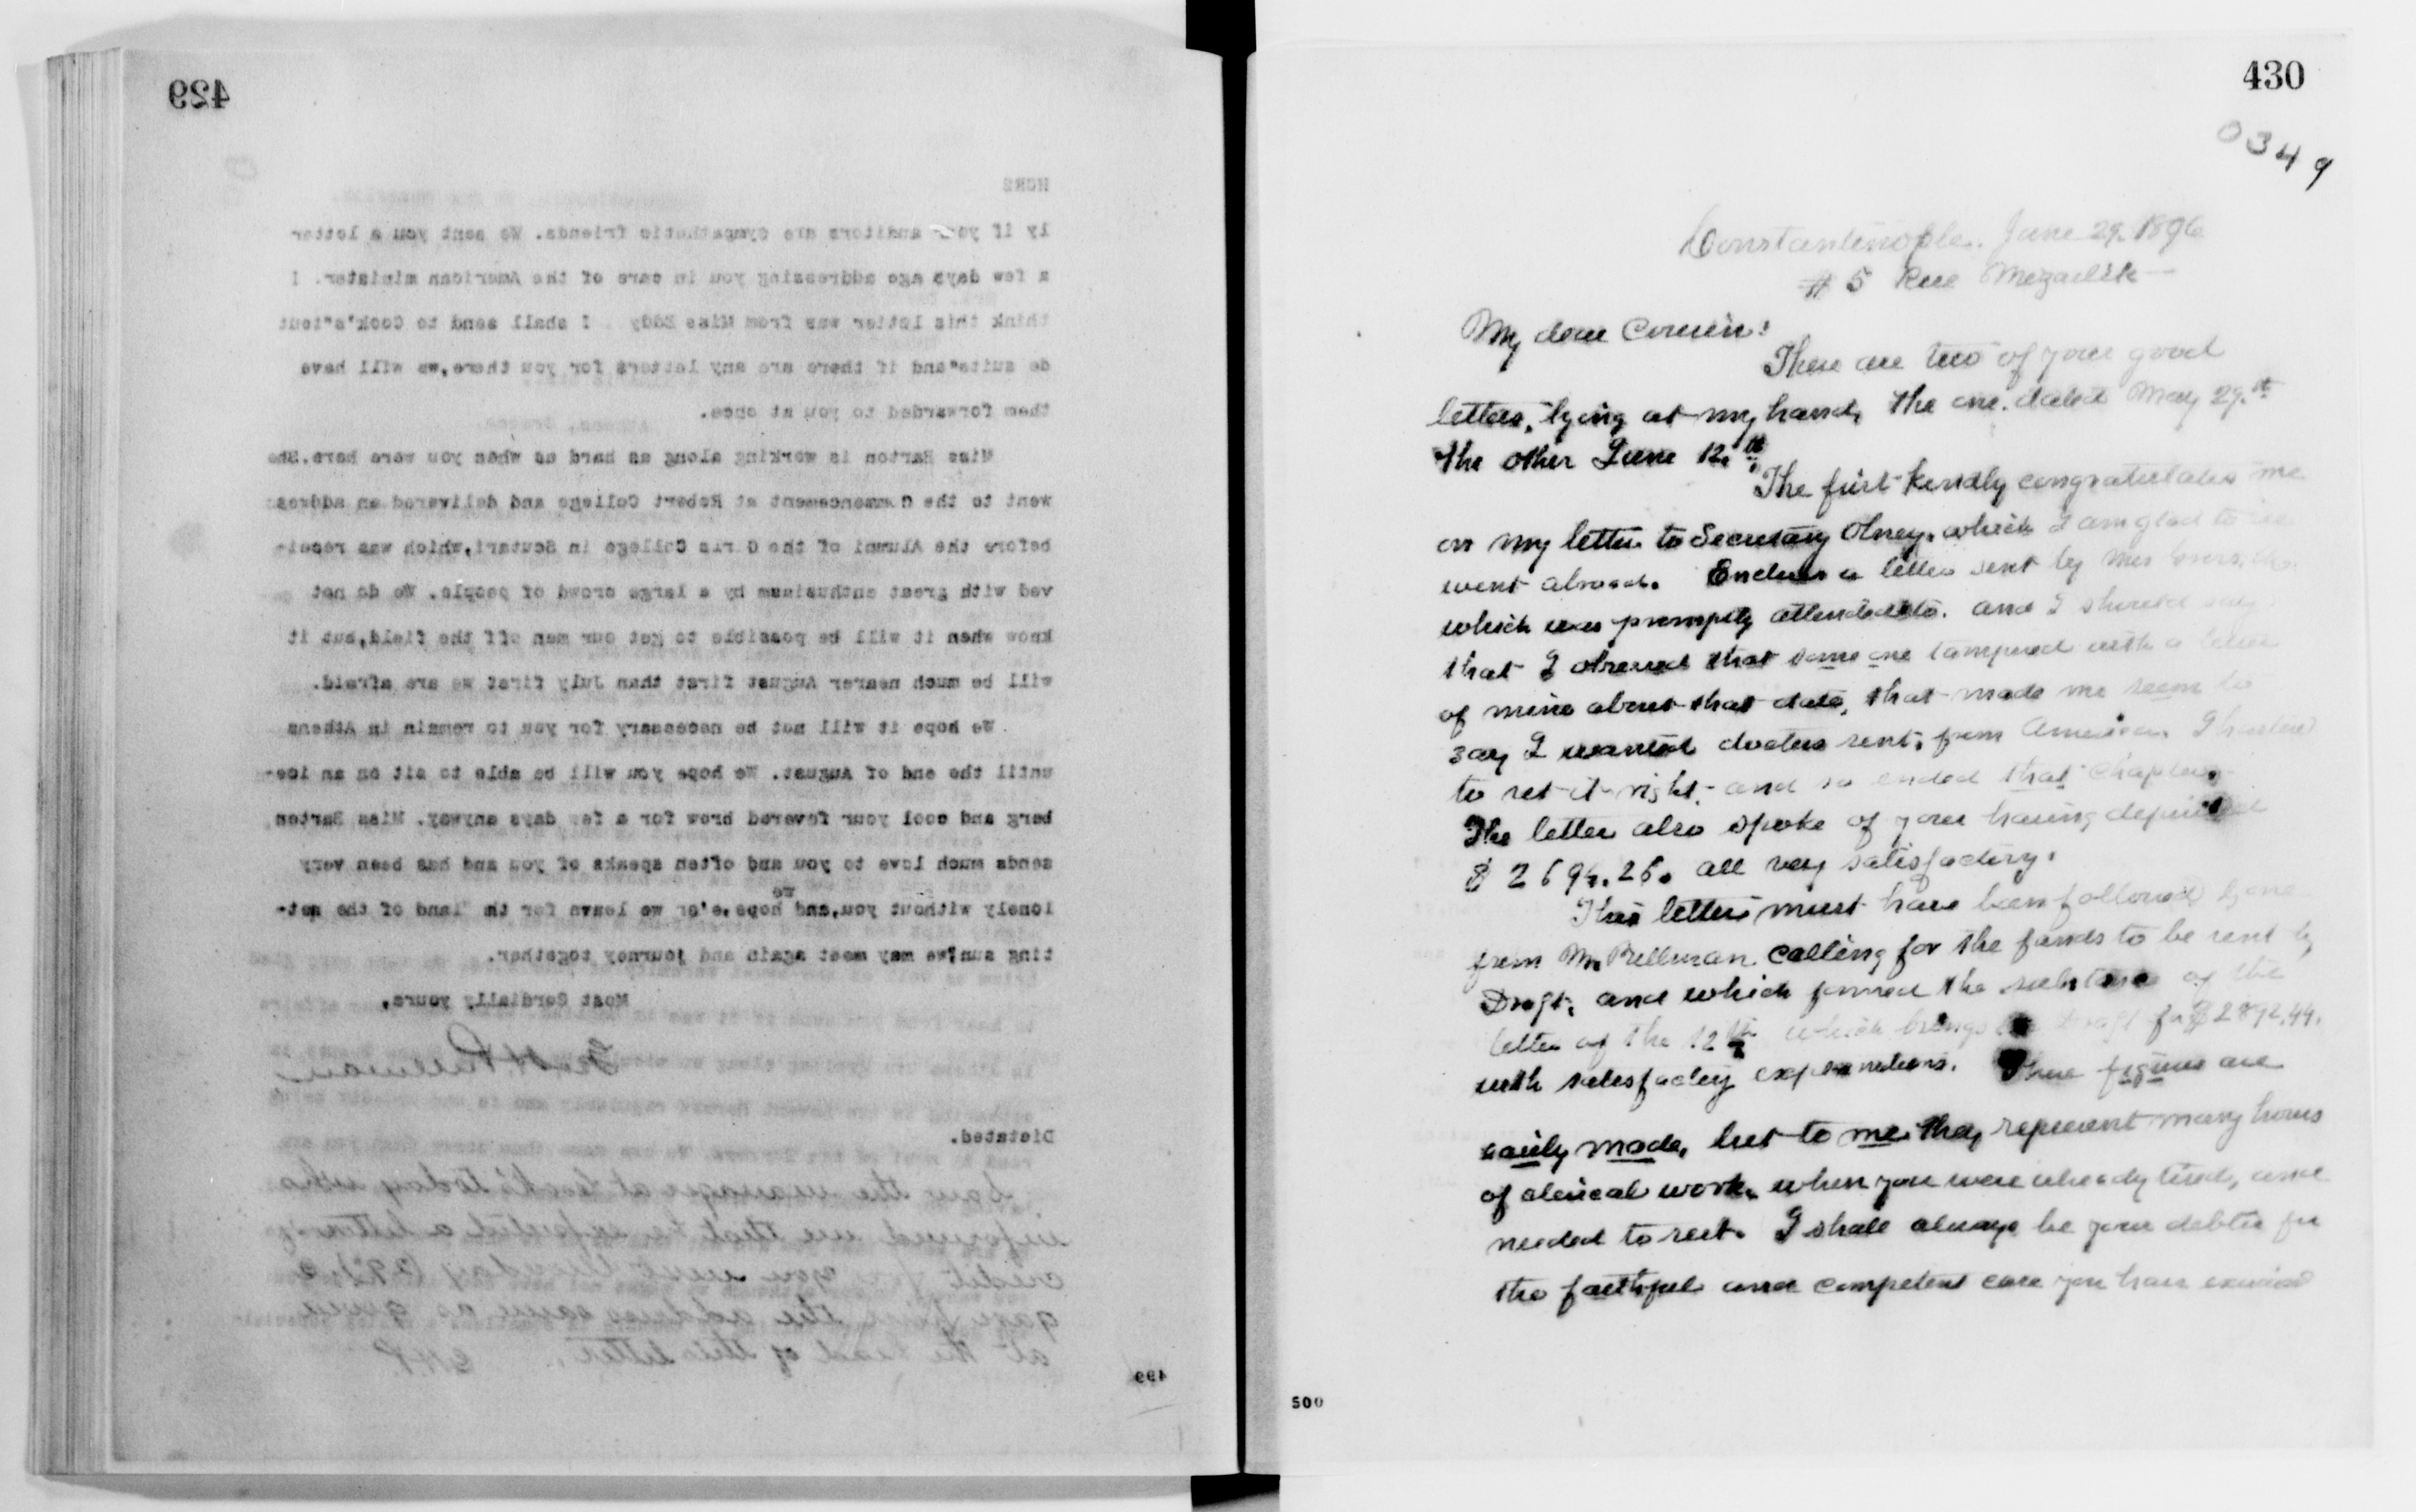 429
HCHS
ly if your auditors are sympathetic friends. We sent you a letter
a few days ago addressing you in care of the American minister. I
think this letter was from Miss Eddy. I shall send to Cook's"tout
de suite"and if there are any letters for you there,we will have
them forwarded to you at once.
Miss Barton is working along as hard as when you were here.She
went to the Commencement at Robert College and delivered an address
before the Alumni of the Girls College in Scutari,which was recei-
ved with great enthusiasm by a large crowd of people. We do not
know when it will be possible to get our men off the field,but it
will be much nearer August first than July first we are afraid.
We hope it will not be necessary for you to remain in Athens
until the end of August. We hope you will be able to sit on an ice-
berg and cool your fevered brow for a few days anyway. Miss Barton
sends much love to you and often speaks of you and has been very
we
lonely without you,and hope,e'er we leave for th "land of the set-
ting sun"we may meet again and journey together.
Most Cordially yours,
Geo H Pullman
Dictated.
Saw the manager at Cook's today who
informed me that he expected a letter of
credit for you next Thursday
gave him the address same as given
at the head of this letter. GHP.
499
430
0349
Constantinople. June 29. 1896
# 5 Rue Mezarlik —
My dear Cousin:
There are two of your good
letters, lying at my hand, the one dated May 29.st
the other June 12.th
The first kindly congratulates me
on my letter to Secretary Olney, which I am glad to see
went abroad. Encloses a letter sent by Mrs
which was promptly attended to. and I should say
that I observed that some one tampered with a letter
of mine about that date, that made me seem to
say I wanted doctors sent, from America. I hastened
to set it right, and so ended that chapter.
The letter also spoke of your having deposited
$ 2694.26. all very satisfactory.
This letter must have been followed by one
from Mr Pullman calling for the funds to be sent by
Draft, and which formed the substance of the
letter of the 12th which brings Draft for $2892,44.
with satisfactory explanations. These figures are
easily made, but to me they represent many hours
of clerical work, when you were already tired, and
needed to rest. I shall always be your debtor for
the faithful and competent care you have exercised
500